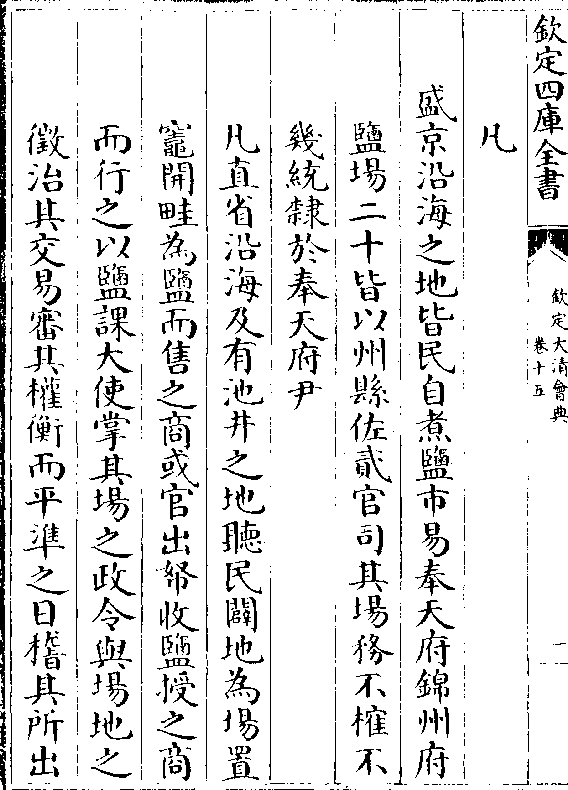 欽定四庫全書
欽定大清會典
卷十五
一
凡
盛京沿海之地皆民自煮鹽市易奉天府錦州府
鹽場二十皆以州縣佐貳官司其場務不榷不
幾統隸於奉天府尹
凡直省沿海及有池井之地聽民闢地為場置
竈開畦為鹽而售之商或官出帑收鹽授之商
而行之以鹽課大使掌其場之政令與場地之
徵治其交易審其權衡而平準之日稽其所出